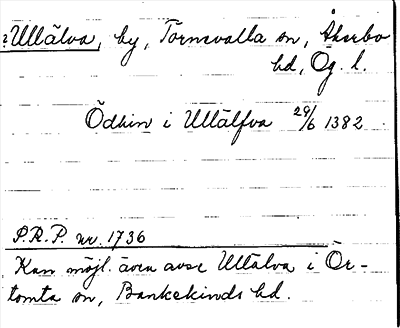 ? Ullälva, by, Törnevalla sn, Åkerbo
hd, Ög. l.
Ödhin i Ullälfva 29/6 1382
P.R.P. nr. 1736
Kan möjl. även avse Ullälva i Ör-
tomta sn, Bankekinds hd.